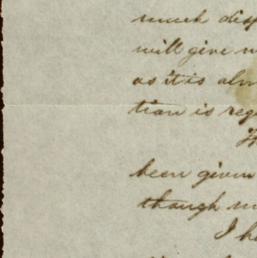 much disp
will give
as it is alm
tion is reg
been given
though
I ha